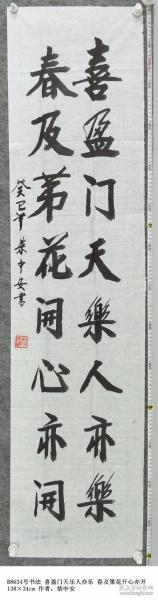 喜盈门天樂人亦樂
春及苐花開心亦開
癸巳年 柴中安書
B8634号书法 喜盈门天乐人亦乐 春及第花开心亦开
138×34cm 作者：柴中安